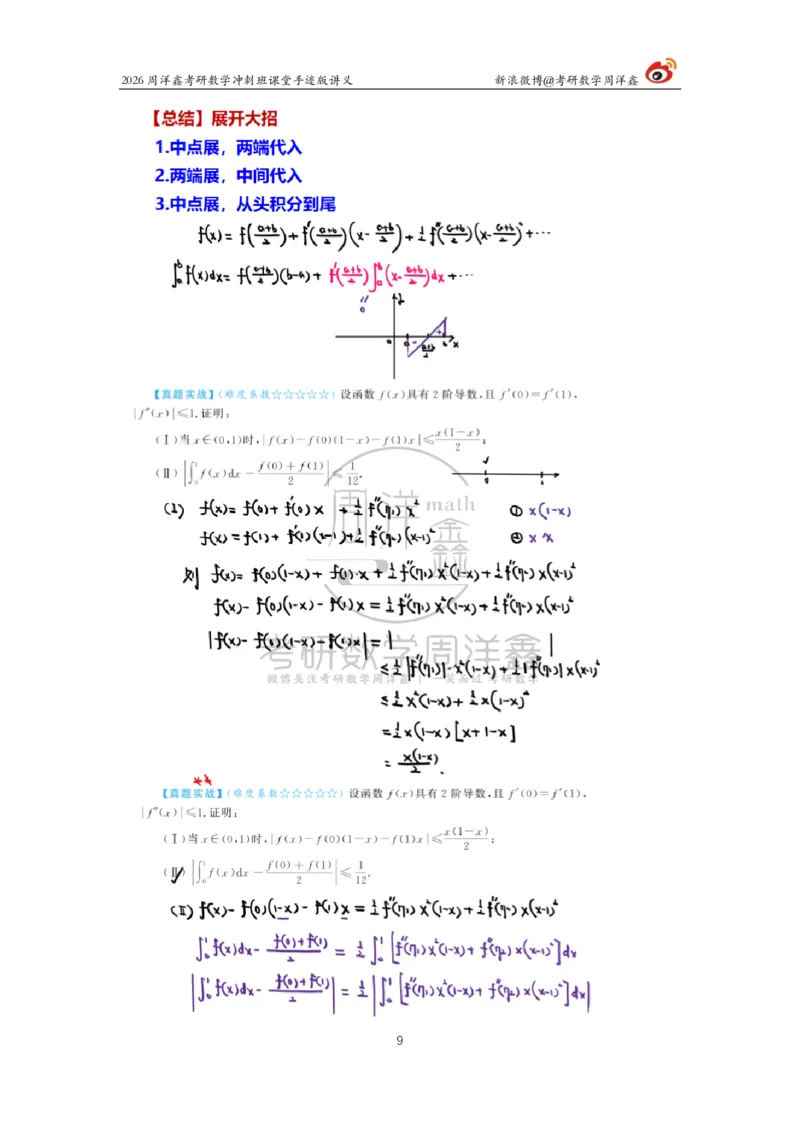 2026 周洋鑫考研数学冲刺班课堂手迹版讲义 新浪微博@考研数学周洋鑫
【总结】展开大招
1.中点展，两端代入
2.两端展，中间代入
3.中点展，从头积分到尾
f(x)= f((a+b)/2)+f'((a+b)/2)(x-(a+b)/2)+½f''((a+b)/2)(x-(a+b)/2)²+···
∫ₐᵇf(x)dx= f((a+b)/2)(b-a)+ f'((a+b)/2)∫ₐᵇ(x-(a+b)/2)dx+···
0
【真题实战】(难度系数☆☆☆☆☆) 设函数 f(x)具有 2 阶导数,且 f'(0)=f'(1),
|f''(x)|≤1.证明:
(Ⅰ)当 x∈(0,1)时,|f(x)-f(0)(1-x)-f(1)x|≤x(1-x)/2;
(Ⅱ)|∫₀¹f(x)dx-(f(0)+f(1))/2|≤1/12.
周洋鑫math
(1) f(x)= f(0)+f'(0)x +½f''(η₁)x² ① x(1-x)
f(x)=f(1)+f'(1)(x-1)+½f''(η₂)(x-1)² ② x x
则 f(x)= f(0)(1-x)+ f(1)·x +½f''(η₁)x²(1-x)+½f''(η₂)x(x-1)²
f(x)- f(0)(1-x)- f(1)x =½f''(η₁)x²(1-x)+½f''(η₂)x(x-1)²
|f(x)- f(0)(1-x)-f(1)x| = | |
考研数学周洋鑫
≤½|f''(η₁)|·x²(1-x)+½|f''(η₂)|x(x-1)²
微博关注考研数学周洋鑫 | 一笑而过 考研数学
≤½x²(1-x)+½x(1-x)²
=½x(1-x)[x+1-x]
= x(1-x)/2.
【真题实战】(难度系数☆☆☆☆☆) 设函数 f(x)具有 2 阶导数,且 f'(0)=f'(1),
|f''(x)|≤1.证明:
(Ⅰ)当 x∈(0,1)时,|f(x)-f(0)(1-x)-f(1)x|≤x(1-x)/2;
(Ⅱ)|∫₀¹f(x)dx-(f(0)+f(1))/2|≤1/12.
(Ⅱ) f(x)- f(0)(1-x)- f(1)x =½f''(η₁)x²(1-x)+½f''(η₂)x(x-1)²
∫₀¹f(x)dx- (f(0)+f(1))/2 = ½∫₀¹[f''(η₁)x²(1-x)+ f''(η₂)x(x-1)²]dx
|∫₀¹f(x)dx- (f(0)+f(1))/2| = ½|∫₀¹[f''(η₁)x²(1-x)+ f''(η₂)x(x-1)²]dx|
9